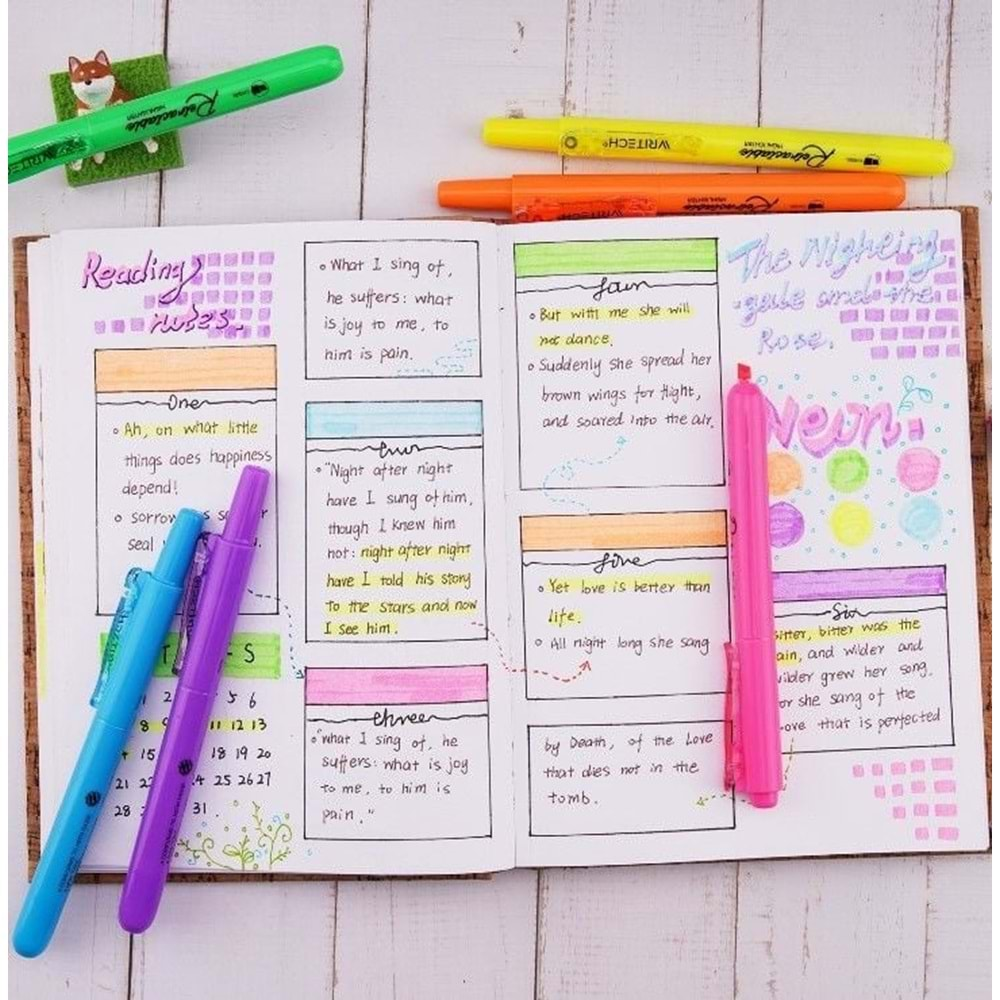 WRITECH
Retractable
HIGHLIGHTER
WRITECH
Retractable
HIGHLIGHTER
WRITECH
Retractable
HIGHLIGHTER
Reading
notes.
One
Ah, on what little
things does happiness
depend!
sorrow
seal
T S
1 2 5 6
8 9 11 12 13
15 18 19 20
21 22 25 26 27
28 31.
What I sing of,
he suffers: what
is joy to me, to
him is pain.
"Night after night
have I sung of him,
though I knew him
not: night after night
have I told his story
to the stars and now
I see him.
three
"what I sing of, he
suffers: what is joy
to me, to him is
pain."
But with me she will
not dance.
Suddenly she spread her
brown wings for flight,
and soared into the air.
five
Yet love is better than
life.
All night long she sang
by Death, of the Love
that dies not in the
tomb.
The Nighein
gale and the
Rose.
Neon.
Six
bitter, bitter was the
pain, and wilder and
wilder grew her song.
for she sang of the
Love that is perfected